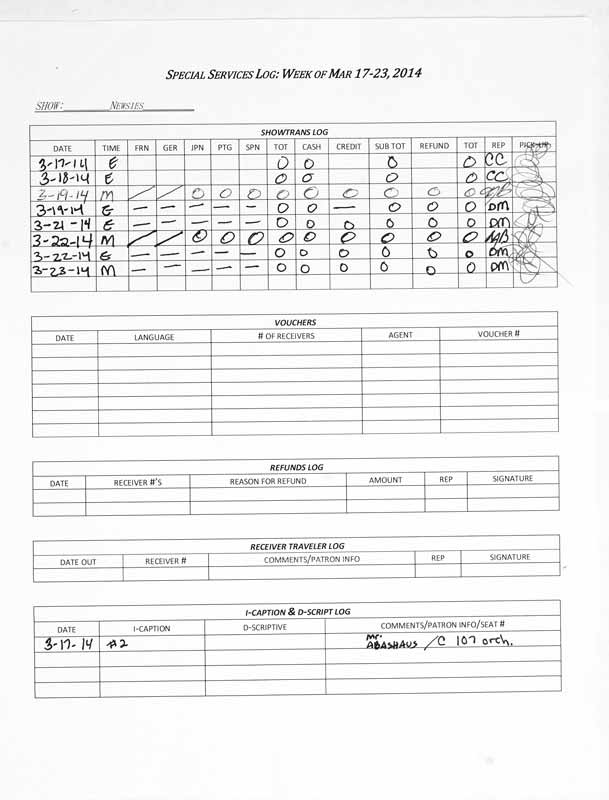 SPECIAL SERVICES LOG: WEEK OF MAR 17-23, 2014
SHOW: NEWSIES
SHOWTRANS LOG
DATE TIME FRN GER JPN PTG SPN TOT CASH CREDIT SUB TOT REFUND TOT REP PICK-UP
3-17-14 E 0 0 0 0 CC
3-18-14 E 0 0 0 0 CC
3-19-14 M / / 0 0 0 0 0 0 0 0 0
3-19-14 E — — — — — 0 0 — 0 0 0 DM
3-21-14 E — — — — — 0 0 0 0 0 0 DM
3-22-14 M / / 0 0 0 0 0 0 0 0 0
3-22-14 E — — — — — 0 0 0 0 0 0 DM
3-23-14 M — — — — — 0 0 0 0 0 0 DM
VOUCHERS
DATE LANGUAGE # OF RECEIVERS AGENT VOUCHER #
REFUNDS LOG
DATE RECEIVER #'S REASON FOR REFUND AMOUNT REP SIGNATURE
RECEIVER TRAVELER LOG
DATE OUT RECEIVER # COMMENTS/PATRON INFO REP SIGNATURE
I-CAPTION & D-SCRIPT LOG
DATE I-CAPTION D-SCRIPTIVE COMMENTS/PATRON INFO/SEAT #
3-17-14 #2 Mr. ABASHAUS /C 107 orch.